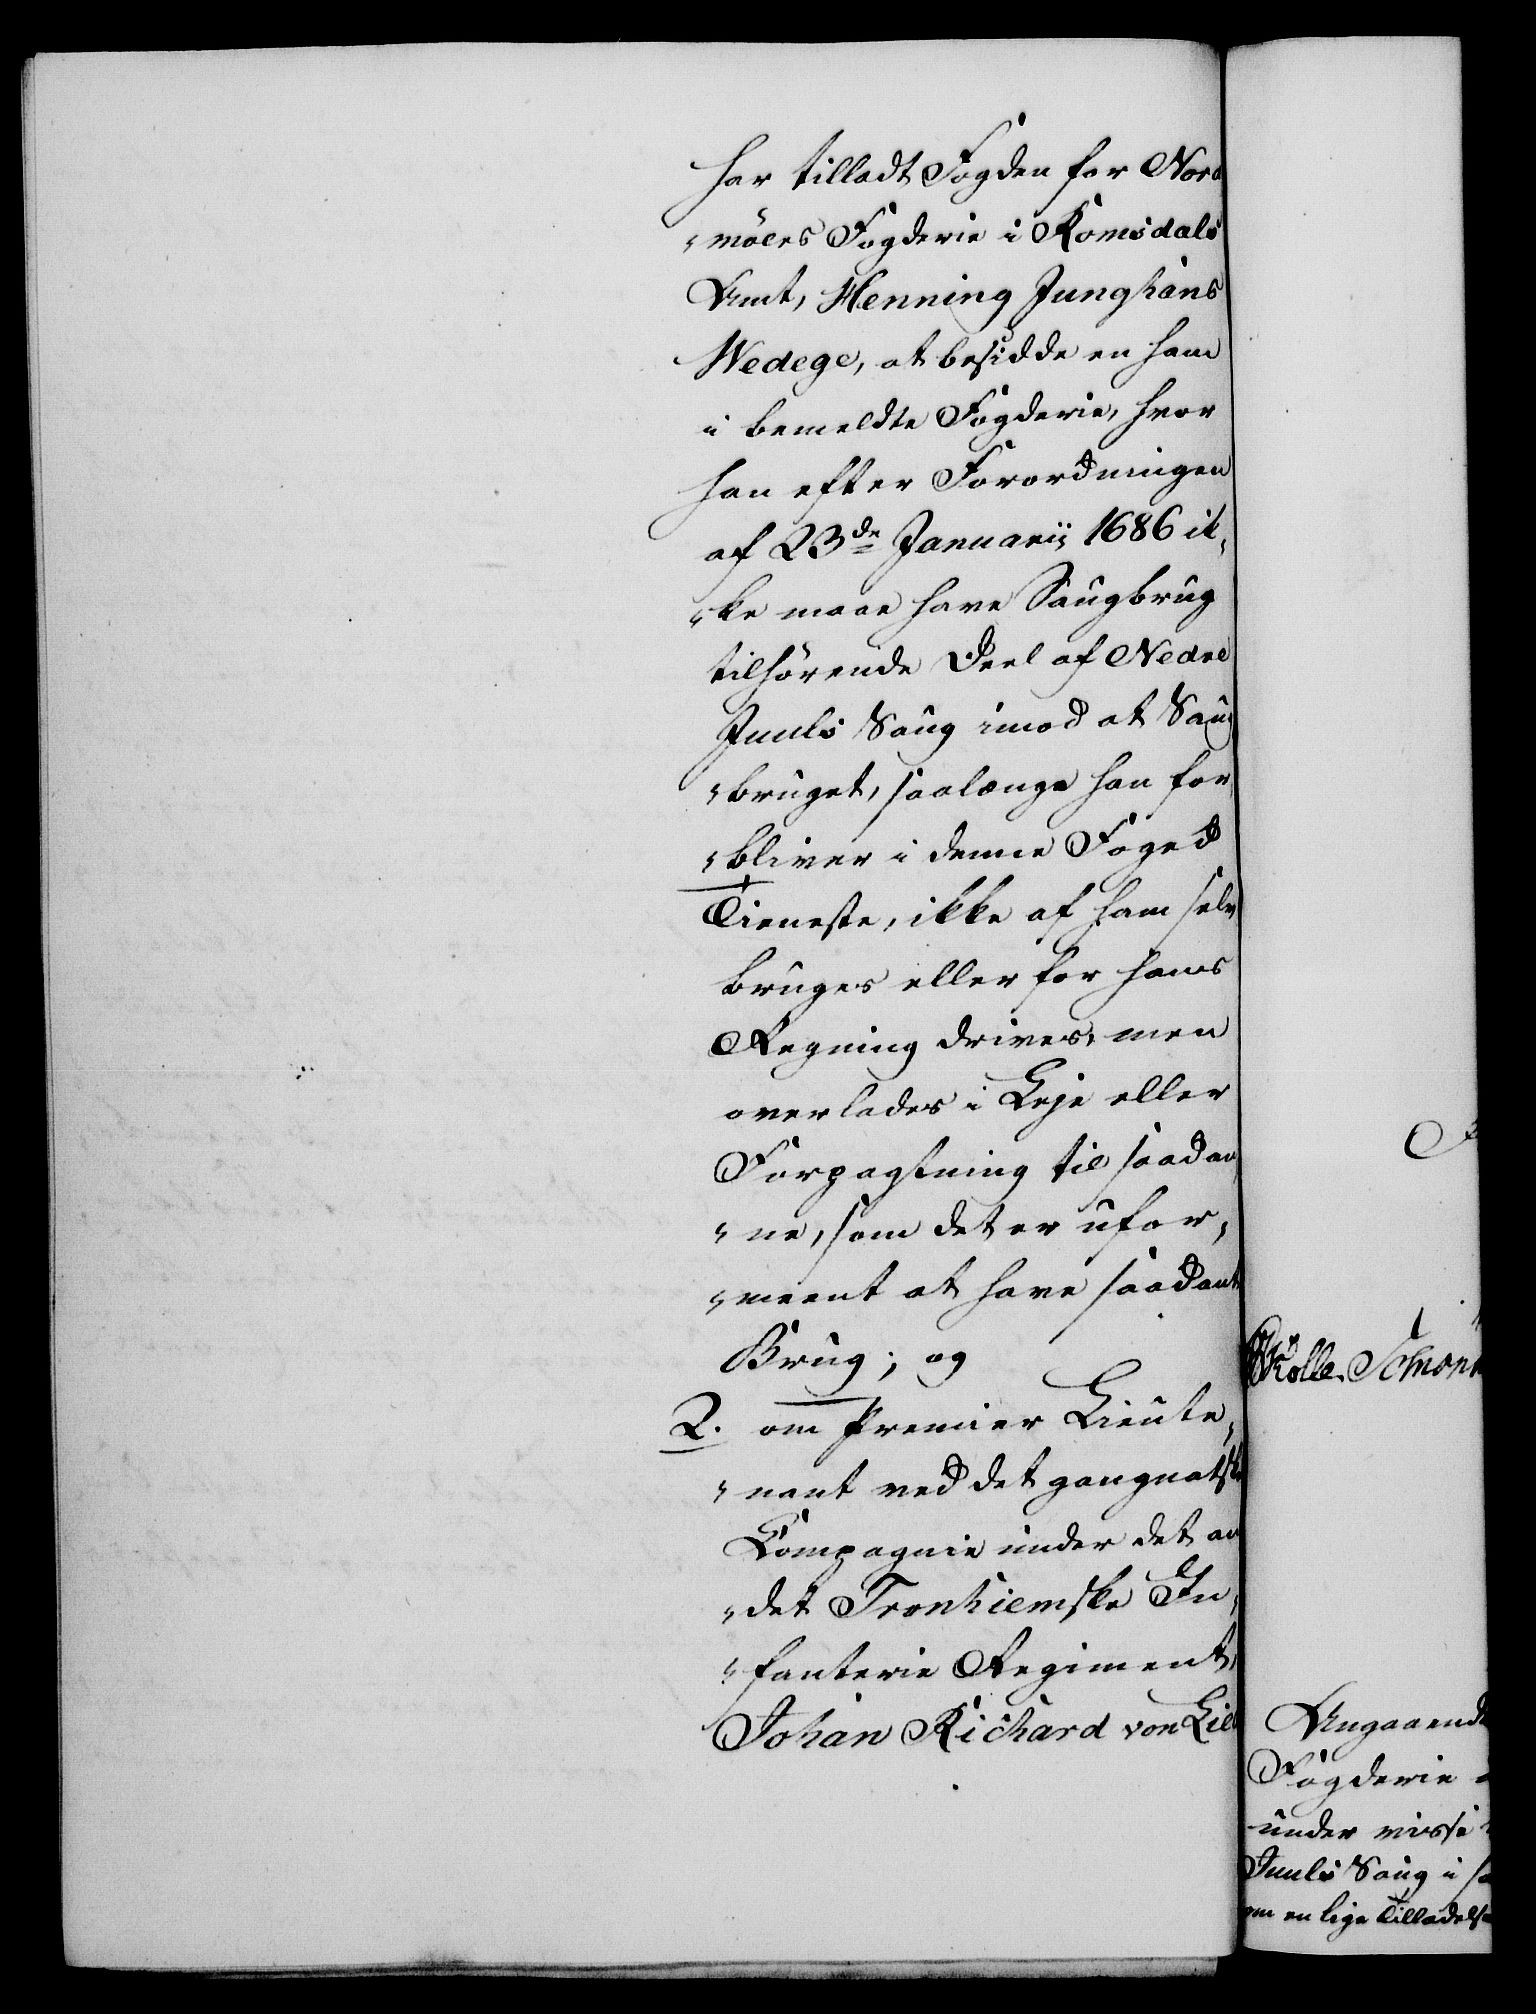 har tilladt Fogden for Nord
-möers Fogderie i Romsdals
Amt, Henning Junghans
Wedege, at besidde en ham
i bemeldte Fogderie, hvor
han efter Forordningen
af 23de Januarii 1686 ik-
-ke maae have Saugbrug
tilhörende Deel af Nedre
Juuls Saug imod at Saug
-bruget, saalænge han for
-bliver i denne Foged
Tieneste, ikke af ham selv
bruges eller for hans
Regning drives, men
overlades i Leje eller
Forpagtning til saadan
-ne, som det er ufor-
-meent at have saadant
Brug; og
2. om Premier Lieute-
-nant ved det gangnatske
Compagnie under det an
-det Tronhiemske In-
-fanterie Regiment,
Johan Richard von Lil
Kolle. Schmon
Angaaende
Fogderie
under visse
Juuls Saug i
om en lige Tilladelse